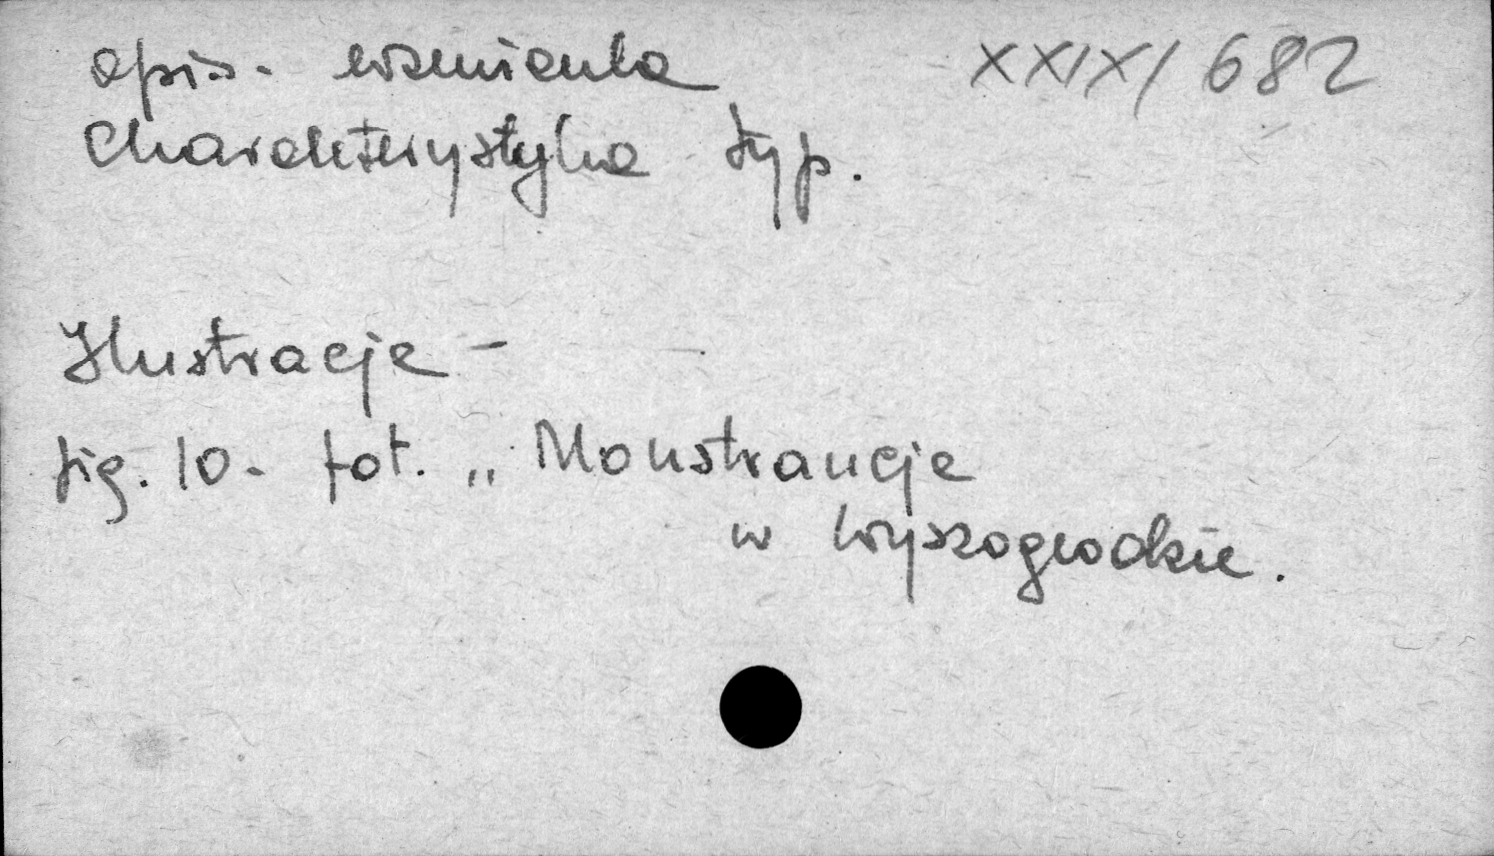 opis. wzmianka XXIX/682
Charakterystyka typ.
Ilustracje -
fig. 10. fot. „Monstrancje
w Wyszogrodzie.